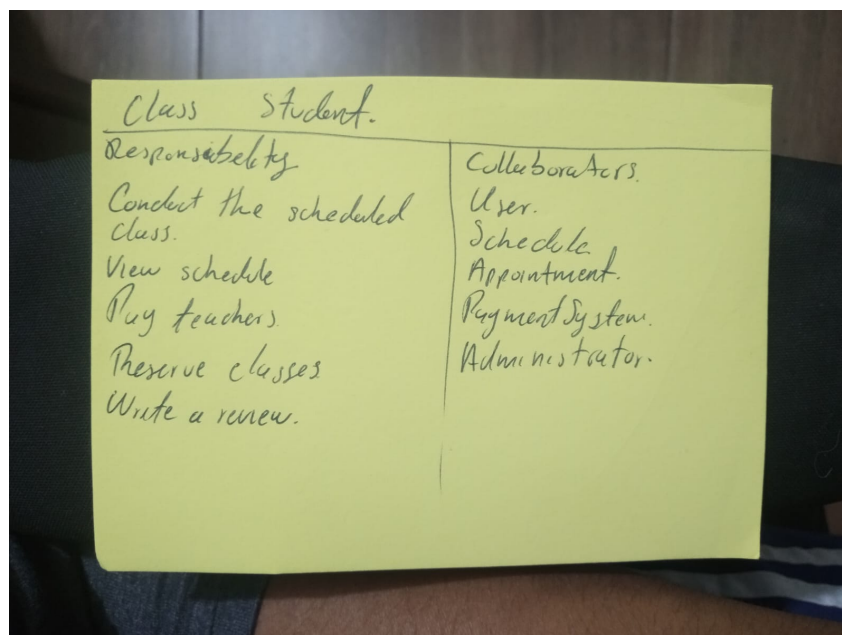 Class Student.
Responsibility
Conduct the scheduled
class.
View schedule
Pay teachers.
Reserve classes.
Write a review.
Collaborators.
User.
Schedule
Appointment.
PaymentSystem.
Administrator.